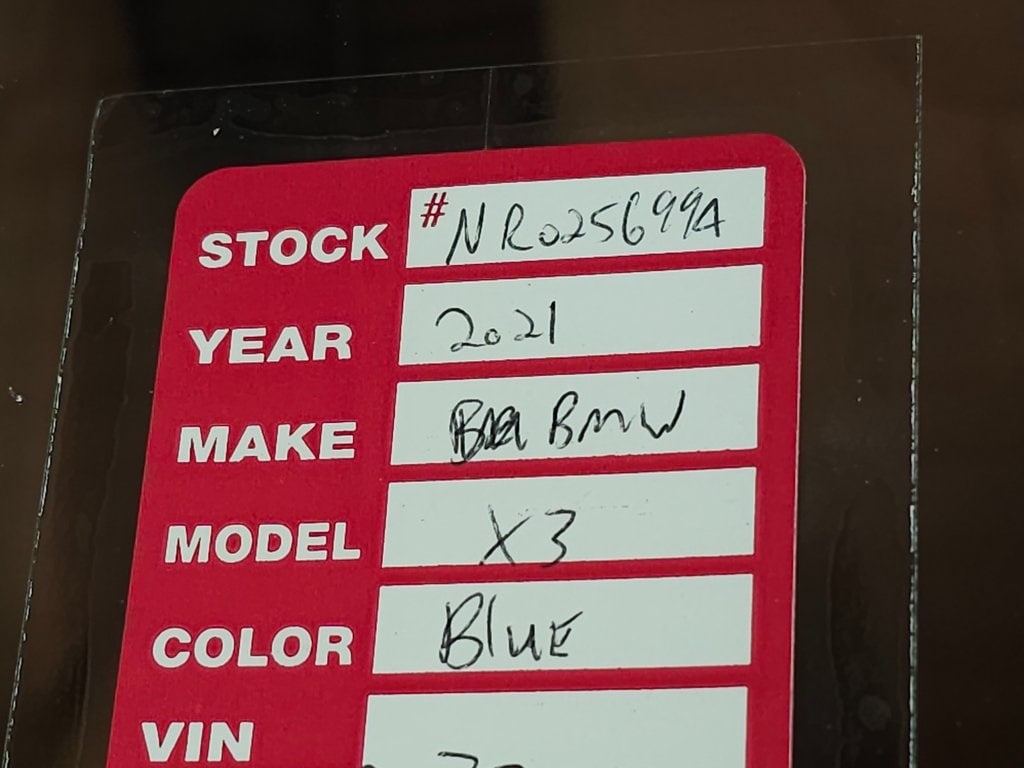 STOCK #NR025699A
YEAR 2021
MAKE BMW
MODEL X3
COLOR BLUE
VIN